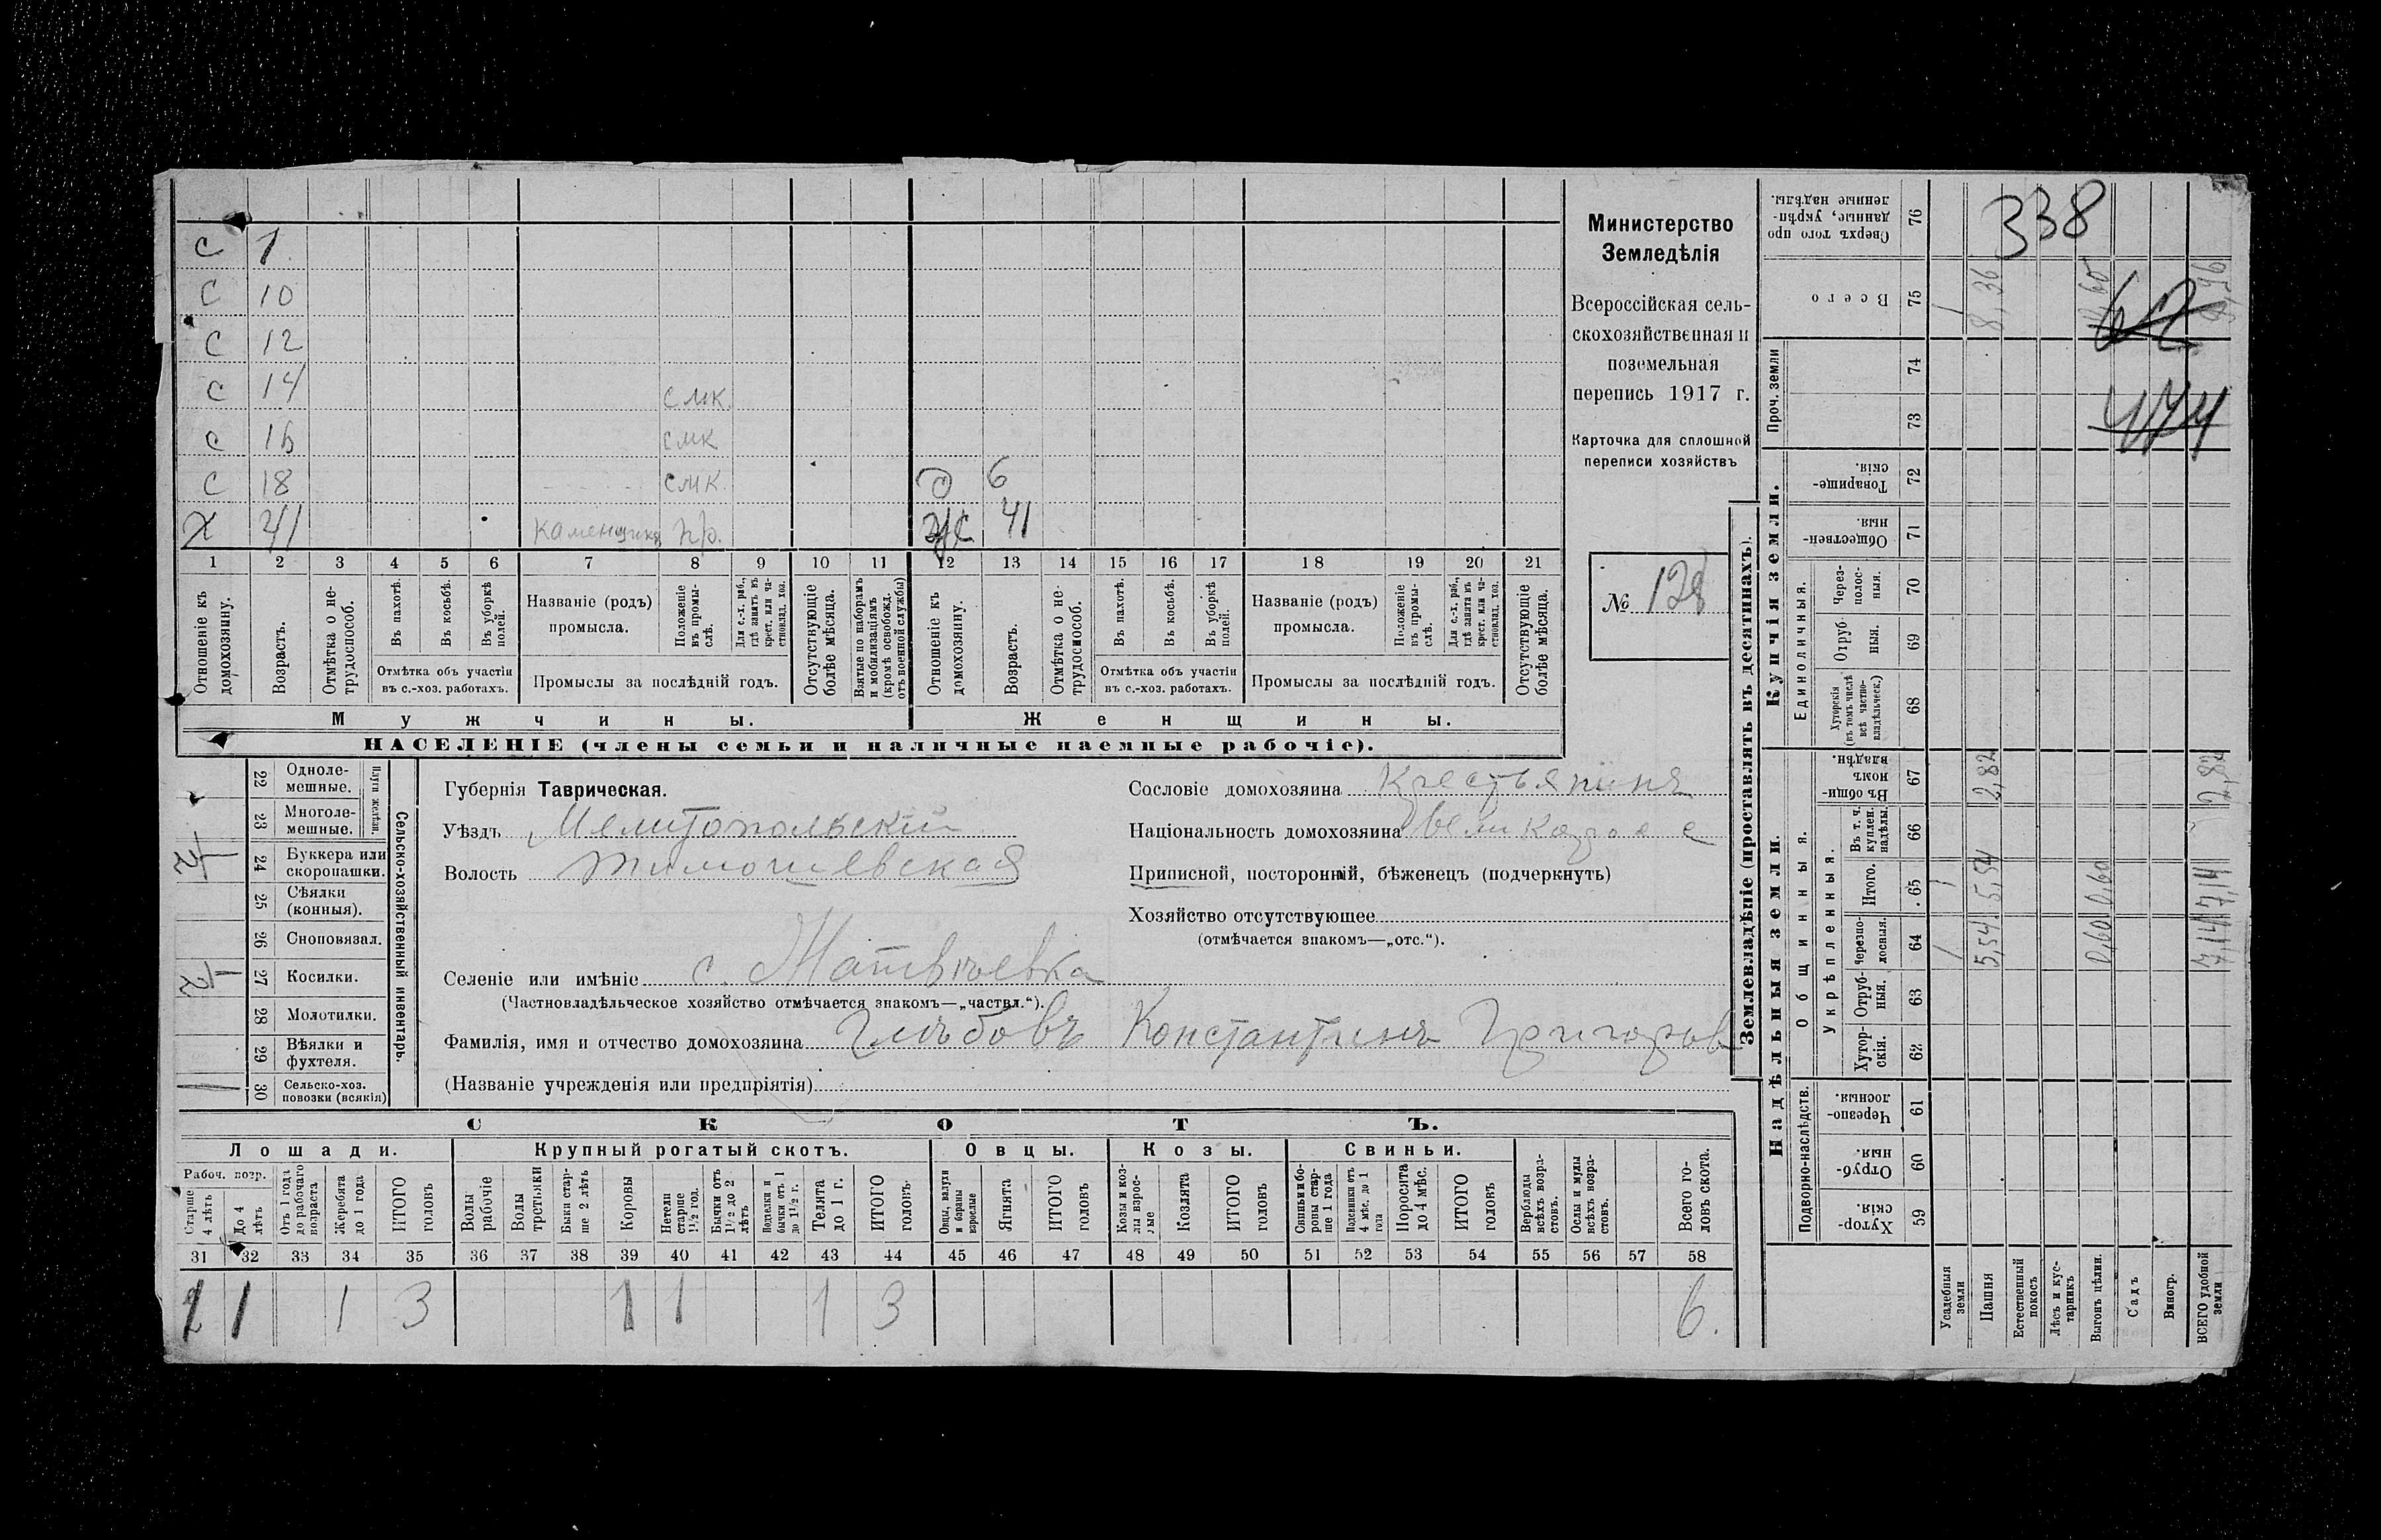 с 1
с 10
с 12
с 14 смк.
с 16 смк
с 18 смк. д 6
х 41 каменщикъ пр. ж 41
1 2 3 4 5 6 7 8 9 10 11 12 13 14 15 16 17 18 19 20 21
Отношеніе къ домохозяину.
Возрастъ.
Отмѣтка о нетрудоспособ.
Въ пахотѣ.
Въ косьбѣ.
Въ уборкѣ полей.
Отмѣтка объ участіи въ с.-хоз. работахъ.
Названіе (родъ) промысла.
Положеніе въ промыслѣ.
Для с.-х. раб., гдѣ занятъ въ крест. или частновлад. хоз.
Промыслы за послѣдній годъ.
Отсутствующіе болѣе мѣсяца.
Взятые по наборамъ и мобилизаціямъ (кромѣ освобожд. отъ военной службы)
Отношеніе къ домохозяину.
Возрастъ.
Отмѣтка о нетрудоспособ.
Въ пахотѣ.
Въ косьбѣ.
Въ уборкѣ полей.
Отмѣтка объ участіи въ с.-хоз. работахъ.
Названіе (родъ) промысла.
Положеніе въ промыслѣ.
Для с.-х. раб., гдѣ занята въ крест. или частновлад. хоз.
Промыслы за послѣдній годъ.
Отсутствующіе болѣе мѣсяца.
Мужчины.
Женщины.
НАСЕЛЕНІЕ (члены семьи и наличные наемные рабочіе).
Министерство
Земледѣлія
Всероссійская сель-
скохозяйственная и
поземельная
перепись 1917 г.
Карточка для сплошной
переписи хозяйствъ
№ 128
22 Одноле-
мешные.
23 Многоле-
мешные.
Плуги желѣзн.
24 Буккера или
скоропашки.
25 Сѣялки
(конныя).
26 Сноповязал.
27 Косилки.
28 Молотилки.
29 Вѣялки и
фухтеля.
1 30 Сельско-хоз.
повозки (всякія)
Сельско-хозяйственный инвентарь.
Губернія Таврическая.
Уѣздъ Мелитопольскій
Волость Тимошевская
Селеніе или имѣніе с. Матвѣевка
(Частновладѣльческое хозяйство отмѣчается знакомъ—„частвл.“).
Фамилія, имя и отчество домохозяина Глѣбовъ Константинъ Григорьев
(Названіе учрежденія или предпріятія)
Сословіе домохозяина Крестьянинъ
Національность домохозяина великоросс
Приписной, посторонній, бѣженецъ (подчеркнуть)
Хозяйство отсутствующее
(отмѣчается знакомъ—„отс.“).
СКОТЪ.
Лошади. Крупный рогатый скотъ. Овцы. Козы. Свиньи.
Рабоч. возр.
Старше 4 лѣтъ
До 4 лѣтъ
Отъ 1 года до рабочаго возраста
Жеребята до 1 года
ИТОГО головъ
Волы рабочіе
Волы третьяки
Быки старше 2 лѣтъ
Коровы
Нетели старше 1½ год.
Бычки отъ 1½ до 2 лѣтъ
Подтелки и бычки отъ 1 до 1½ г.
Телята до 1 г.
ИТОГО головъ
Овцы, валухи и бараны взрослые
Ягнята
ИТОГО головъ
Козы и козлы взрослые
Козлята
ИТОГО головъ
Свиньи и боровы старше 1 года
Подсвинки отъ 4 мѣс. до 1 года
Поросята до 4 мѣс.
ИТОГО головъ
Верблюды всѣхъ возрастовъ.
Ослы и мулы всѣхъ возрастовъ.
Всего головъ скота.
31 32 33 34 35 36 37 38 39 40 41 42 43 44 45 46 47 48 49 50 51 52 53 54 55 56 57 58
1 1 3 1 1 1 3 6.
Землевладѣніе (проставлять въ десятинахъ).
338
Сверхъ того проданные, укрѣпленные надѣлы. 76
Всего 75 1 8,36
Проч. земли 74
73 474
Купчія земли.
Товарищескія. 72
Общественныя. 71
Единоличныя.
Черезполосныя. 70
Отрубныя. 69
Хуторскія (въ томъ числѣ всѣ частновладѣльческ.) 68
Надѣльныя земли.
Общинныя.
Въ общинномъ владѣн. 67 2,82 2,82
Укрѣпленныя.
Въ т. ч. куплен. надѣлы. 66
Итого. 65 1 5,54 0,60 7,14
Черезполосныя. 64 1 5,54 0,60 7,14
Отрубныя. 63
Хуторскія. 62
Подворно-наслѣдств.
Черезполосныя. 61
Отрубныя. 60
Хуторскія. 59
Усадебныя земли
Пашня
Естественный покосъ
Лѣсъ и кустарникъ
Выгонъ цѣлин.
Садъ
Виногр.
ВСЕГО удобной земли